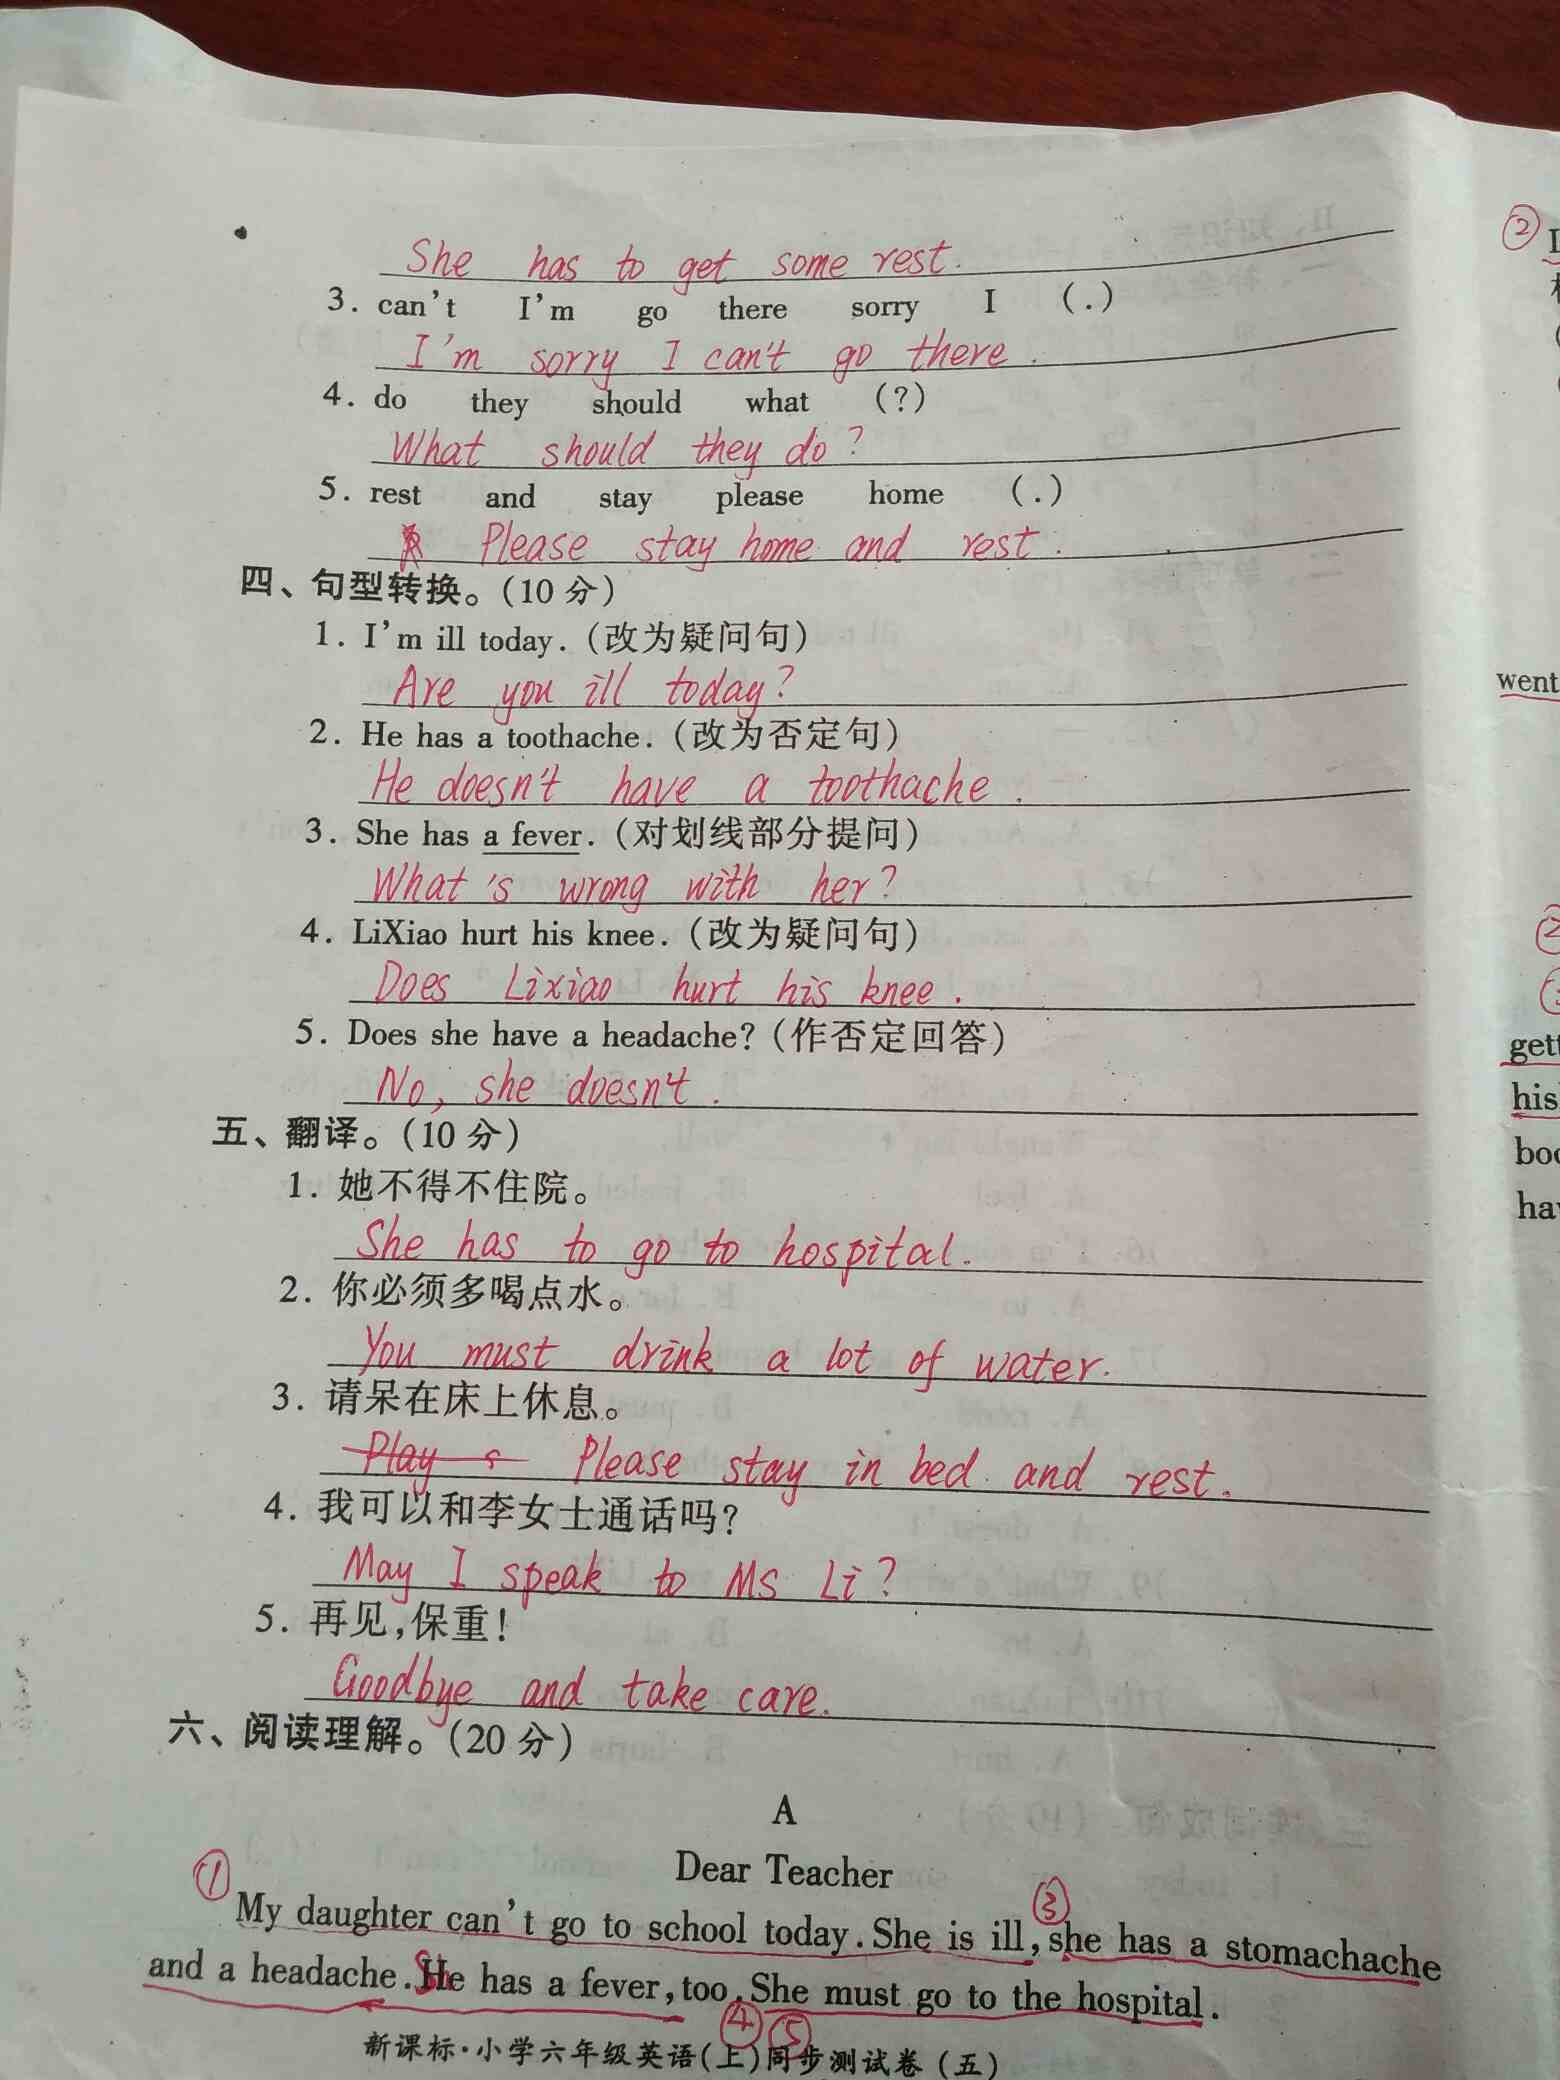 She has to get some rest.
3. can't I'm go there sorry I (.)
I'm sorry I can't go there.
4. do they should what (?)
What should they do?
5. rest and stay please home (.)
Please stay home and rest.
四、句型转换。(10分)
1. I'm ill today. (改为疑问句)
Are you ill today?
2. He has a toothache. (改为否定句)
He doesn't have a toothache.
3. She has a fever. (对划线部分提问)
What's wrong with her?
4. LiXiao hurt his knee. (改为疑问句)
Does Lixiao hurt his knee.
5. Does she have a headache? (作否定回答)
No, she doesn't.
五、翻译。(10分)
1. 她不得不住院。
She has to go to hospital.
2. 你必须多喝点水。
You must drink a lot of water.
3. 请呆在床上休息。
Play s Please stay in bed and rest.
4. 我可以和李女士通话吗?
May I speak to Ms Li?
5. 再见,保重!
Goodbye and take care.
六、阅读理解。(20分)
A
Dear Teacher
① My daughter can't go to school today. She is ill, ③ she has a stomachache
and a headache. He has a fever, too. She must go to the hospital.
④ ⑤
新课标·小学六年级英语(上)同步测试卷(五)
②
went
gett
his
boo
hav